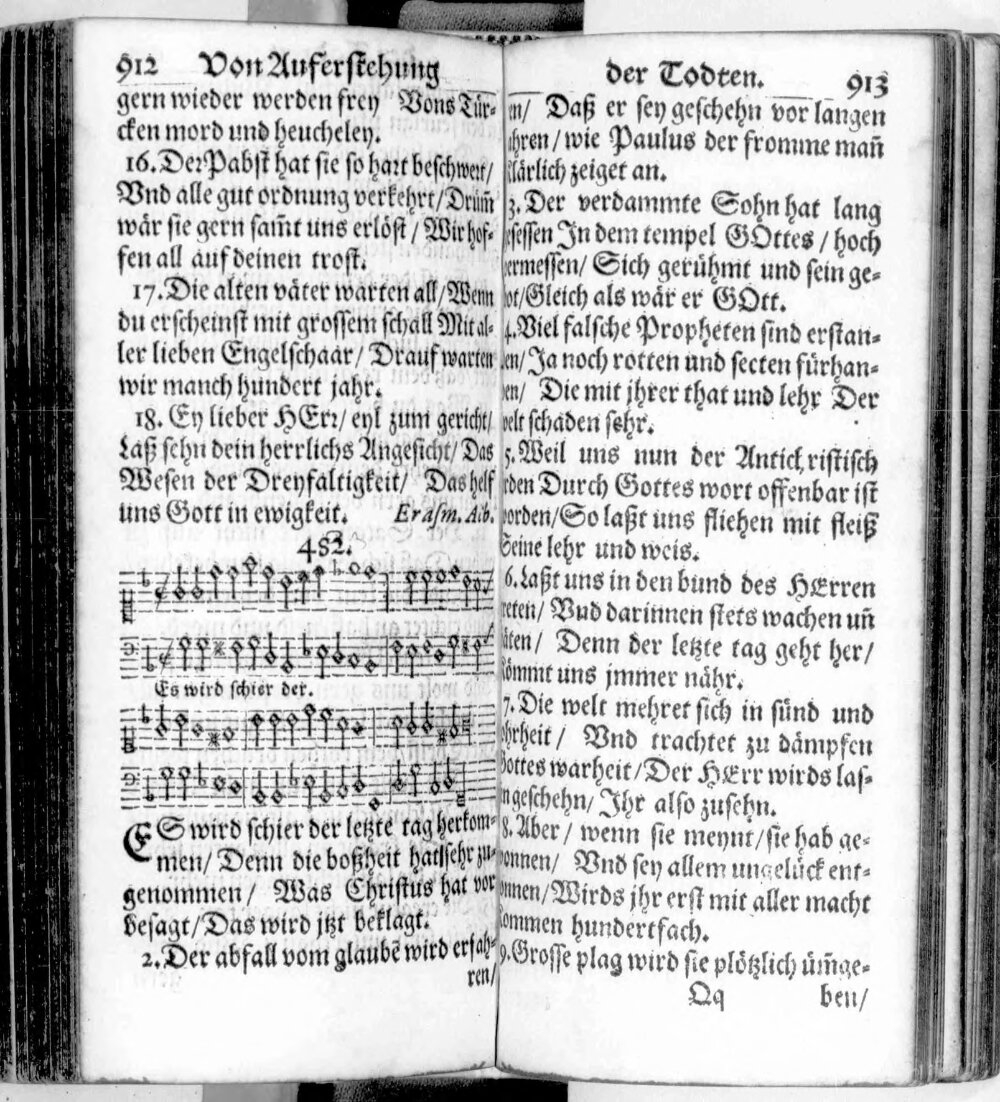 912 Von Auferstehung
gern wieder werden frey Vons Tür-
cken mord und heucheley.
16. Der Pabst hat sie so hart beschwert/
Vnd alle gut ordnung verkehrt/ Drum̃
wär sie gern samt uns erlöst/ Wir hof-
fen all auf deinen trost.
17. Die alten väter warten all/ Wenn
du erscheinst mit grossem schall Mit al-
ler lieben Engelschaar/ Drauf warten
wir manch hundert jahr.
18. Ey lieber HErr/ eyl zum gericht/
Laß sehn dein herrlichs Angesicht/ Das
Wesen der Dreyfaltigkeit/ Das helf
uns Gott in ewigkeit. Erasm. Alb.
482.
Es wird schier der.
ES wird schier der letzte tag herkom-
men/ Denn die boßheit hat sehr zu-
genommen/ Was Christus hat vor
besagt/ Das wird jtzt beklagt.
2. Der abfall vom glaubẽ wird erfah-
ren/
der Todten. 913
en/ Daß er sey geschehn vor langen
ahren/ wie Paulus der fromme mañ
klärlich zeiget an.
3. Der verdammte Sohn hat lang
gesessen In dem tempel GOttes/ hoch
vermessen/ Sich gerühmt und sein ge-
bot/ Gleich als wär er GOtt.
4. Viel falsche Propheten sind erstan-
den/ Ja noch rotten und secten fürhan-
den/ Die mit jhrer that und lehr Der
welt schaden sehr.
5. Weil uns nun der Antichristisch
orden Durch Gottes wort offenbar ist
worden/ So laßt uns fliehen mit fleiß
Seine lehr und weis.
6. Laßt uns in den bund des HErren
treten/ Vnd darinnen stets wachen uñ
bäten/ Denn der letzte tag geht her/
Kömmt uns jmmer nähr.
7. Die welt mehret sich in sünd und
ohrheit/ Vnd trachtet zu dämpfen
Gottes warheit/ Der HErr wirds las-
n geschehn/ Jhr also zusehn.
8. Aber/ wenn sie meynt/ sie hab ge-
wonnen/ Vnd sey allem ungelück ent-
onnen/ Wirds jhr erst mit aller macht
kommen hundertfach.
9. Grosse plag wird sie plötzlich üm̃ge-
Qq ben/